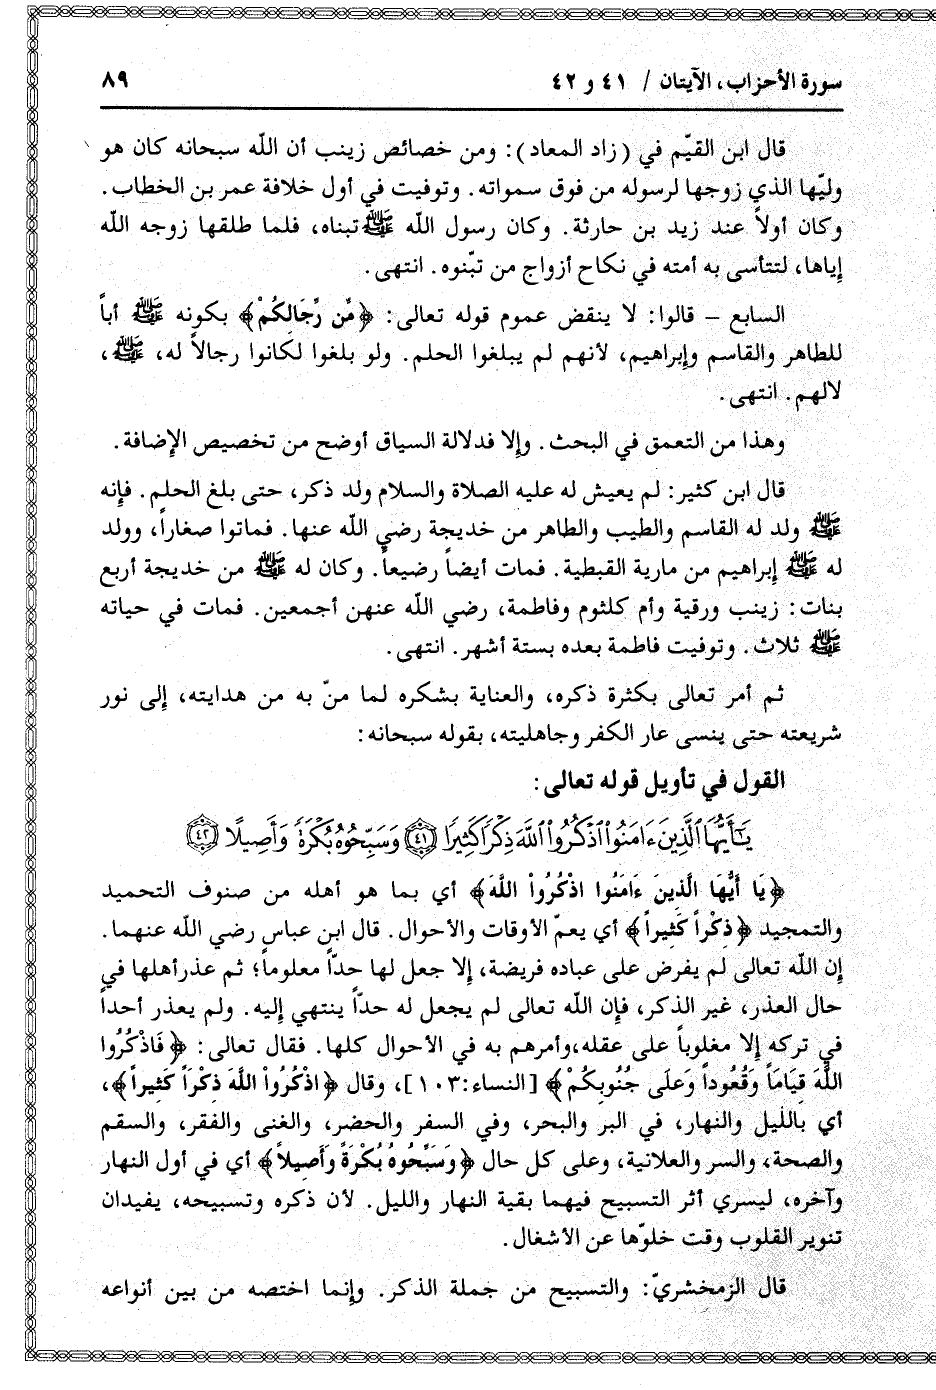 سورة الأحزاب، الآيتان / ٤١ و ٤٢ ٨٩
قال ابن القيّم في (زاد المعاد): ومن خصائص زينب أن اللّه سبحانه كان هو
وليّها الذي زوجها لرسوله من فوق سمواته. وتوفيت في أول خلافة عمر بن الخطاب.
وكان أولاً عند زيد بن حارثة. وكان رسول اللّه ﷺ تبناه، فلما طلقها زوجه اللّه
إياها، لتتأسى به أمته في نكاح أزواج من تبّنوه. انتهى.
السابع – قالوا: لا ينقض عموم قوله تعالى: ﴿مِّن رِّجَالِكُمْ﴾ بكونه ﷺ أباً
للطاهر والقاسم وإبراهيم، لأنهم لم يبلغوا الحلم. ولو بلغوا لكانوا رجالاً له، ﷺ،
لالهم. انتهى.
وهذا من التعمق في البحث. وإلا فدلالة السياق أوضح من تخصيص الإضافة.
قال ابن كثير: لم يعيش له عليه الصلاة والسلام ولد ذكر، حتى بلغ الحلم. فإنه
ﷺ ولد له القاسم والطيب والطاهر من خديجة رضي اللّه عنها. فماتوا صغاراً، وولد
له ﷺ إبراهيم من مارية القبطية. فمات أيضاً رضيعاً. وكان له ﷺ من خديجة أربع
بنات: زينب ورقية وأم كلثوم وفاطمة، رضي اللّه عنهن أجمعين. فمات في حياته
ﷺ ثلاث. وتوفيت فاطمة بعده بستة أشهر. انتهى.
ثم أمر تعالى بكثرة ذكره، والعناية بشكره لما منّ به من هدايته، إلى نور
شريعته حتى ينسى عار الكفر وجاهليته، بقوله سبحانه:
القول في تأويل قوله تعالى:
يَٰٓأَيُّهَا ٱلَّذِينَ ءَامَنُوا۟ ٱذْكُرُوا۟ ٱللَّهَ ذِكْرًا كَثِيرًا ٤١ وَسَبِّحُوهُ بُكْرَةً وَأَصِيلًا ٤٢
﴿يَا أَيُّهَا الَّذِينَ ءَامَنُوا اذْكُرُواْ اللَّهَ﴾ أي بما هو أهله من صنوف التحميد
والتمجيد ﴿ذِكْراً كَثِيراً﴾ أي يعمّ الأوقات والأحوال. قال ابن عباس رضي اللّه عنهما.
إن اللّه تعالى لم يفرض على عباده فريضة، إلا جعل لها حدّاً معلوماً؛ ثم عذرأهلها في
حال العذر، غير الذكر، فإن اللّه تعالى لم يجعل له حدّاً ينتهي إليه. ولم يعذر أحداً
في تركه إلا مغلوباً على عقله،وأمرهم به في الأحوال كلها. فقال تعالى: ﴿فَاذْكُرُوا
اللَّهَ قِيَامَاً وَقُعُوداً وَعَلَى جُنُوبِكُمْ﴾ [النساء:١٠٣]، وقال ﴿اذْكُرُواْ اللَّهَ ذِكْراً كَثيراً﴾،
أي بالليل والنهار، في البر والبحر، وفي السفر والحضر، والغنى والفقر، والسقم
والصحة، والسر والعلانية، وعلى كل حال ﴿وَسَبِّحُوهُ بُكْرَةً وأَصِيلاً﴾ أي في أول النهار
وآخره، ليسري أثر التسبيح فيهما بقية النهار والليل. لأن ذكره وتسبيحه، يفيدان
تنوير القلوب وقت خلوّها عن الأشغال.
قال الزمخشريّ: والتسبيح من جملة الذكر. وإنما اختصه من بين أنواعه